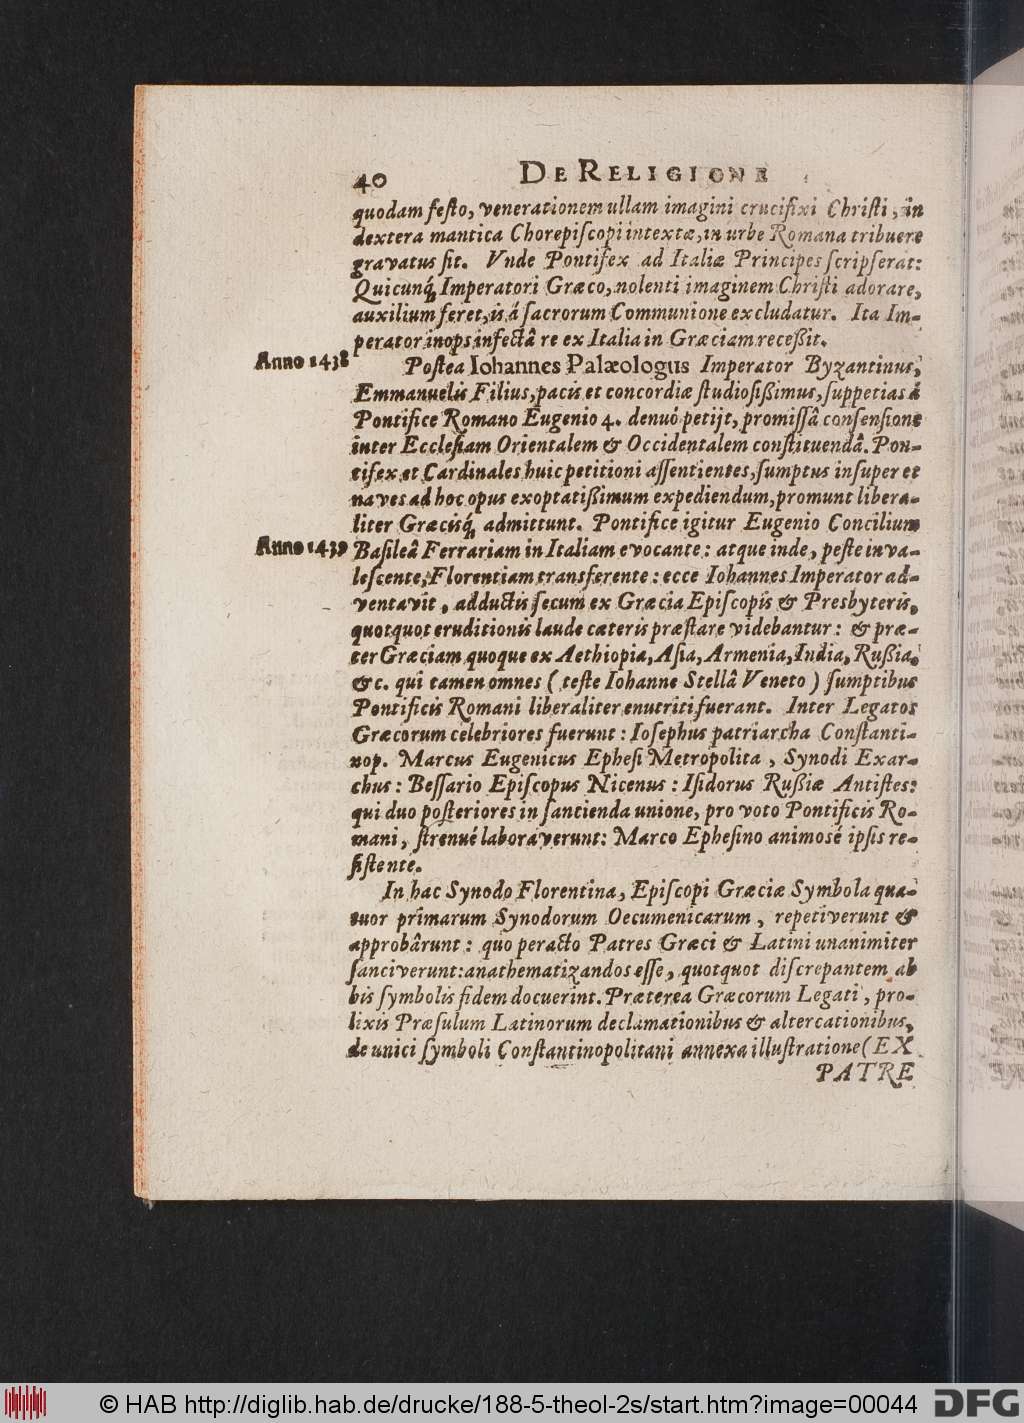 40 DE RELIGIONE
quodam feſto, venerationem ullam imagini crucifixi Chriſti, in
dextera mantica Chorepiſcopi intextæ, in urbe Romana tribuere
gravatus ſit. Vnde Pontifex ad Italiæ Principes ſcripſerat:
Quicunq́, Imperatori Græco, nolenti imaginem Chriſti adorare,
auxilium feret, is á ſacrorum Communione excludatur. Ita Im-
perator inops infectâ re ex Italia in Græciam receßit.
Anno 1438
Poſtea Iohannes Palæologus Imperator Byzantinus,
Emmanuelis Filius, pacis et concordiæ ſtudioſißimus, ſuppetias á
Pontifice Romano Eugenio 4. denuó petijt, promiſſâ conſenſione
inter Eccleſiam Orientalem & Occidentalem conſtituendâ. Pon-
tifex et Cardinales huic petitioni aſſentientes, ſumptus inſuper et
naves ad hoc opus exoptatißimum expediendum, promunt libera-
liter Græcisq́, admittunt. Pontifice igitur Eugenio Concilium
Anno 1439
Baſileâ Ferrariam in Italiam evocante: atque inde, peſte inva-
leſcente, Florentiam transferente: ecce Iohannes Imperator ad-
ventavit, adductis ſecum ex Græcia Epiſcopis & Presbyteris,
quotquot eruditionis laude cæteris præſtare videbantur: & præ-
ter Græciam quoque ex Aethiopia, Aſia, Armenia, India, Rußia,
&c. qui tamen omnes ( teſte Iohanne Stellâ Veneto ) ſumptibus
Pontificis Romani liberaliter enutriti fuerant. Inter Legatos
Græcorum celebriores fuerunt: Ioſephus patriarcha Conſtanti-
nop. Marcus Eugenicus Epheſi Metropolita, Synodi Exar-
chus: Beſſario Epiſcopus Nicenus: Iſidorus Rußiæ Antiſtes:
qui duo poſteriores in ſancienda unione, pro voto Pontificis Ro-
mani, ſtrenué laboraverunt: Marco Epheſino animosé ipſis re-
ſiſtente.
In hac Synodo Florentina, Epiſcopi Græciæ Symbola qua-
tuor primarum Synodorum Oecumenicarum, repetiverunt &
approbârunt: quo peracto Patres Græci & Latini unanimiter
ſanciverunt: anathematizandos eſſe, quotquot diſcrepantem ab
his ſymbolis fidem docuerint. Præterea Græcorum Legati, pro-
lixis Præſulum Latinorum declamationibus & altercationibus,
de unici ſymboli Conſtantinopolitani annexa illuſtratione (EX
PATRE
© HAB http://diglib.hab.de/drucke/188-5-theol-2s/start.htm?image=00044
DFG